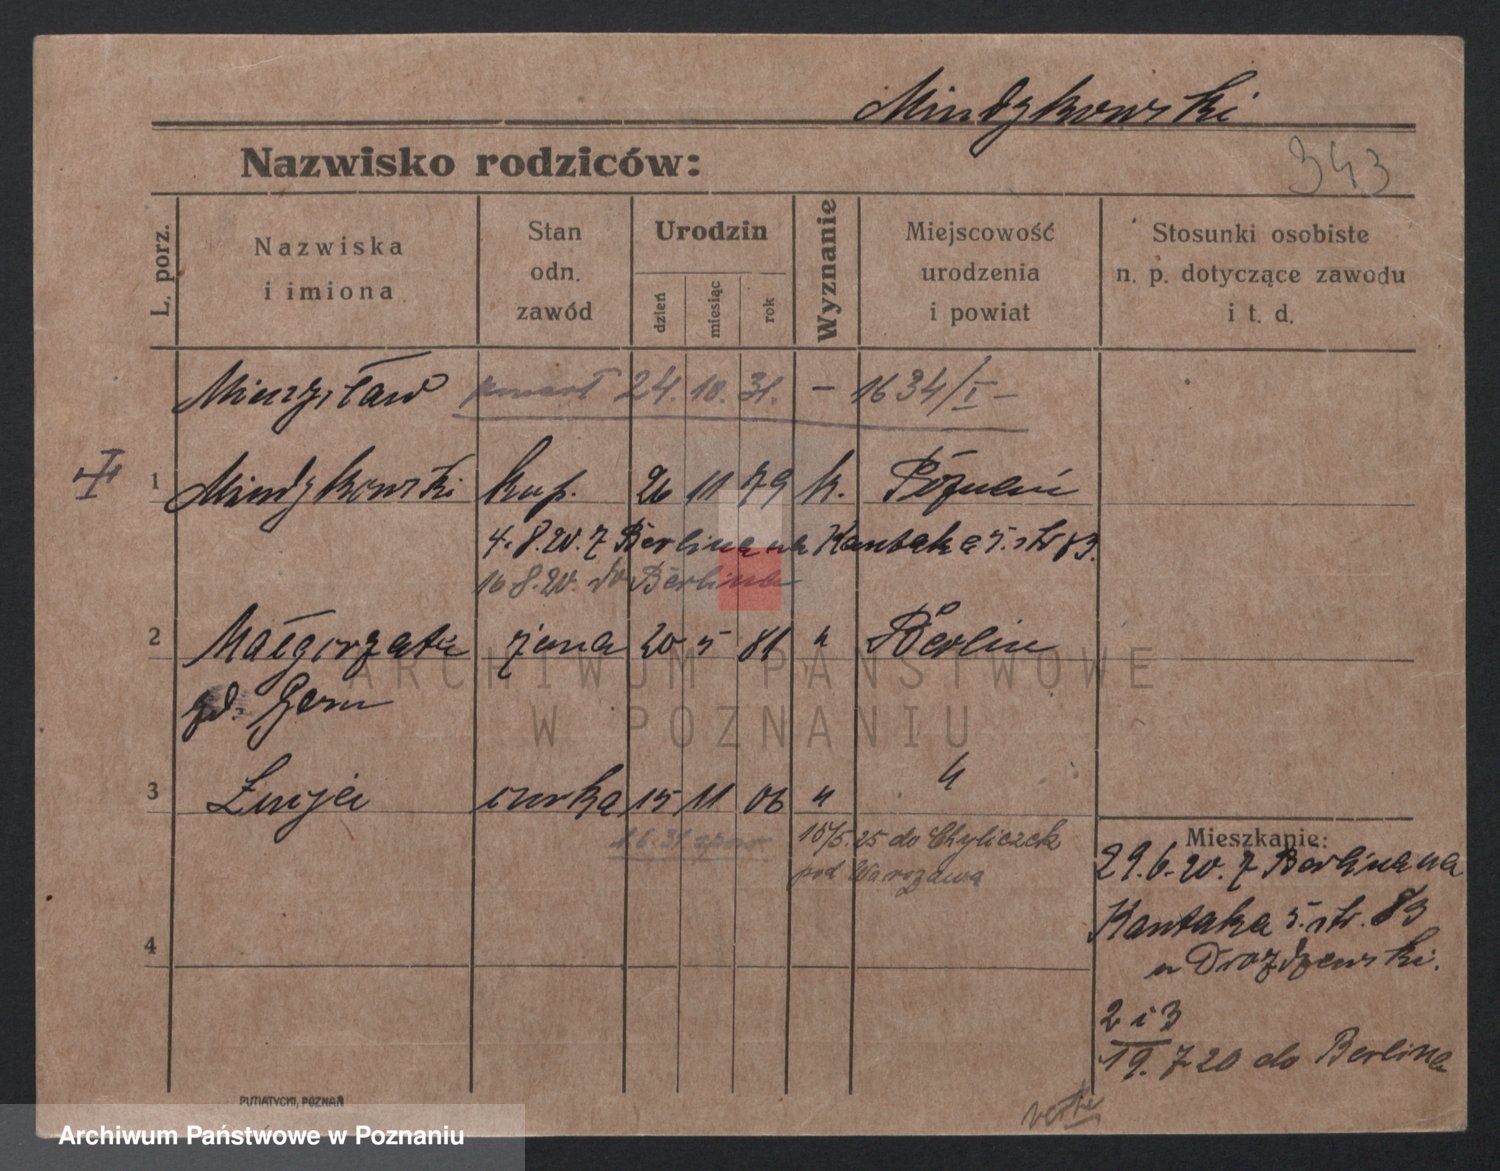 Mindykowski
Nazwisko rodziców:
343
L. porz.
Nazwiska
i imiona
Stan
odn.
zawód
Urodzin
dzień
miesiąc
rok
Wyznanie
Miejscowość
urodzenia
i powiat
Stosunki osobiste
n. p. dotyczące zawodu
i t. d.
Mieczysław zmarł 24. 10. 31. – 1634/I –
1 Mindykowski kup. 26 11 79 k. Poznań
4.8.20. z Berlina na Kantaka 5. str 83.
16.8.20. do Berlina
2 Małgorzata żona 20 5 81 " Berlin
gd.
3 córka 15 11 06 " "
1.6.31
15/5.25 do Chyliczek
pod Warszawą
4
Mieszkanie:
29.6.20. z Berlina na
Kantaka 5. str. 83
u Drożdżewski.
2 i 3
19.7 20 do Berlina
verte
PUTIATYCKI, POZNAŃ
ARCHIWUM PAŃSTWOWE
W POZNANIU
Archiwum Państwowe w Poznaniu